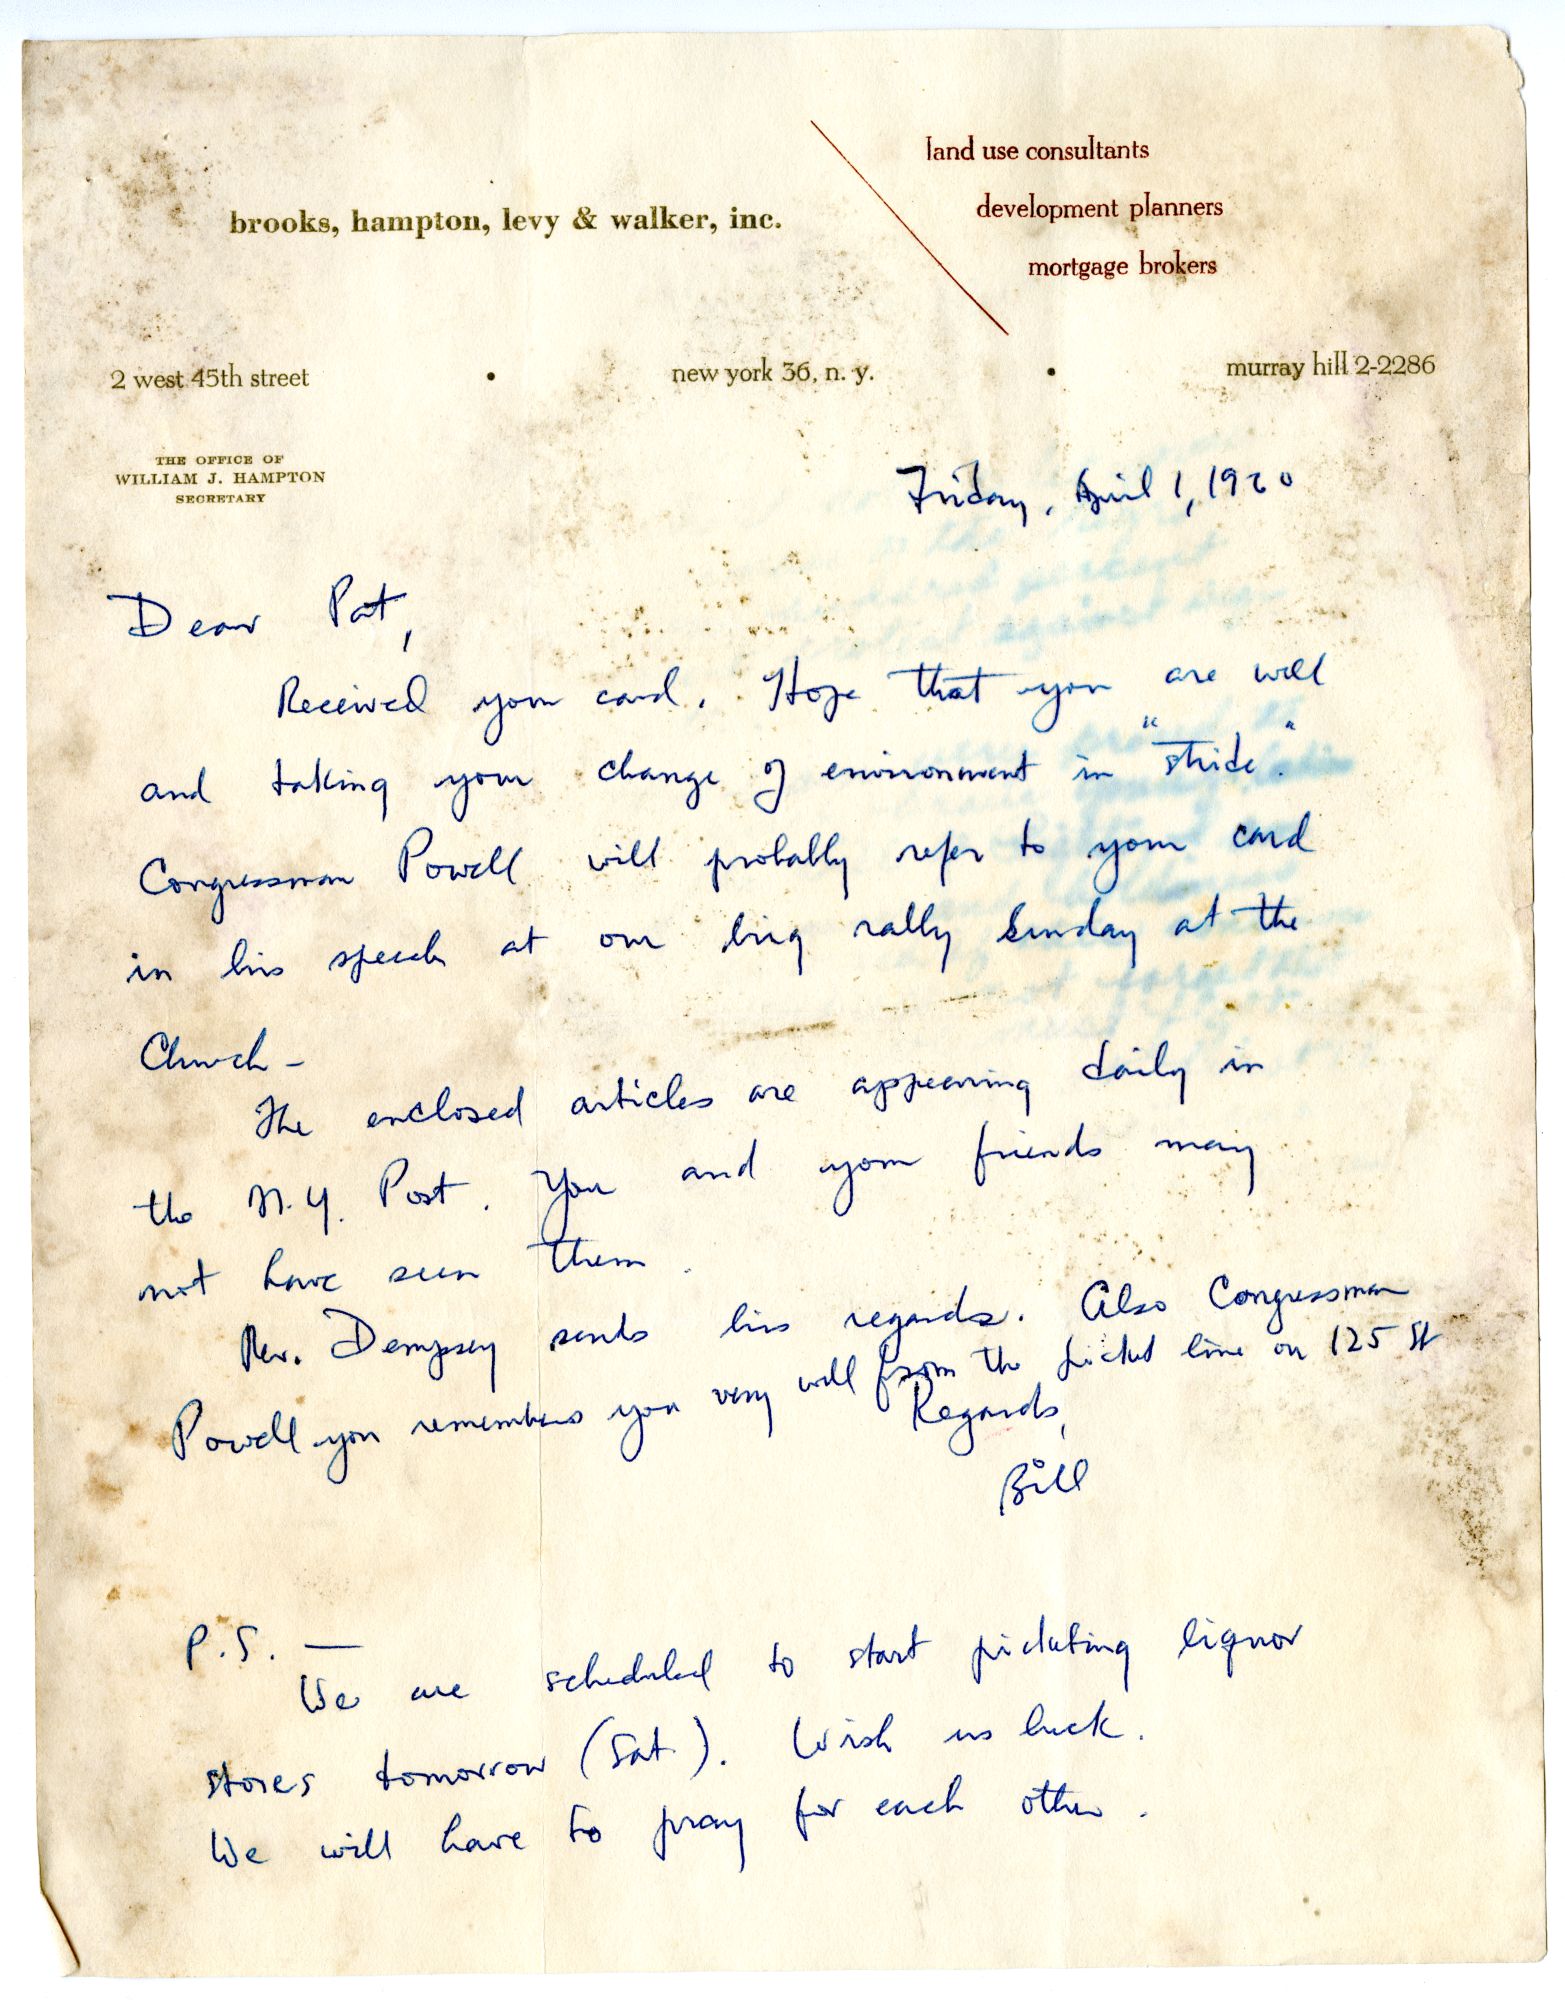 land use consultants
development planners
brooks, hampton, levy & walker, inc.
mortgage brokers
2 west 45th street • new york 36, n. y. • murray hill 2-2286
THE OFFICE OF
WILLIAM J. HAMPTON
SECRETARY
Friday, April 1, 1960
Dear Pat,
Received your card. Hope that you are well
and taking your change of environment in "stride."
Congressman Powell will probably refer to your card
in his speech at our big rally Sunday at the
Church -
The enclosed articles are appearing daily in
the N.Y. Post. You and your friends may
not have seen them.
Rev. Dempsey sends his regards. Also Congressman
Powell you remembers you very well from the picket line on 125 St
Regards,
Bill
P.S. —
We are scheduled to start picketing liquor
stores tomorrow (Sat.). Wish us luck.
We will have to pray for each other.